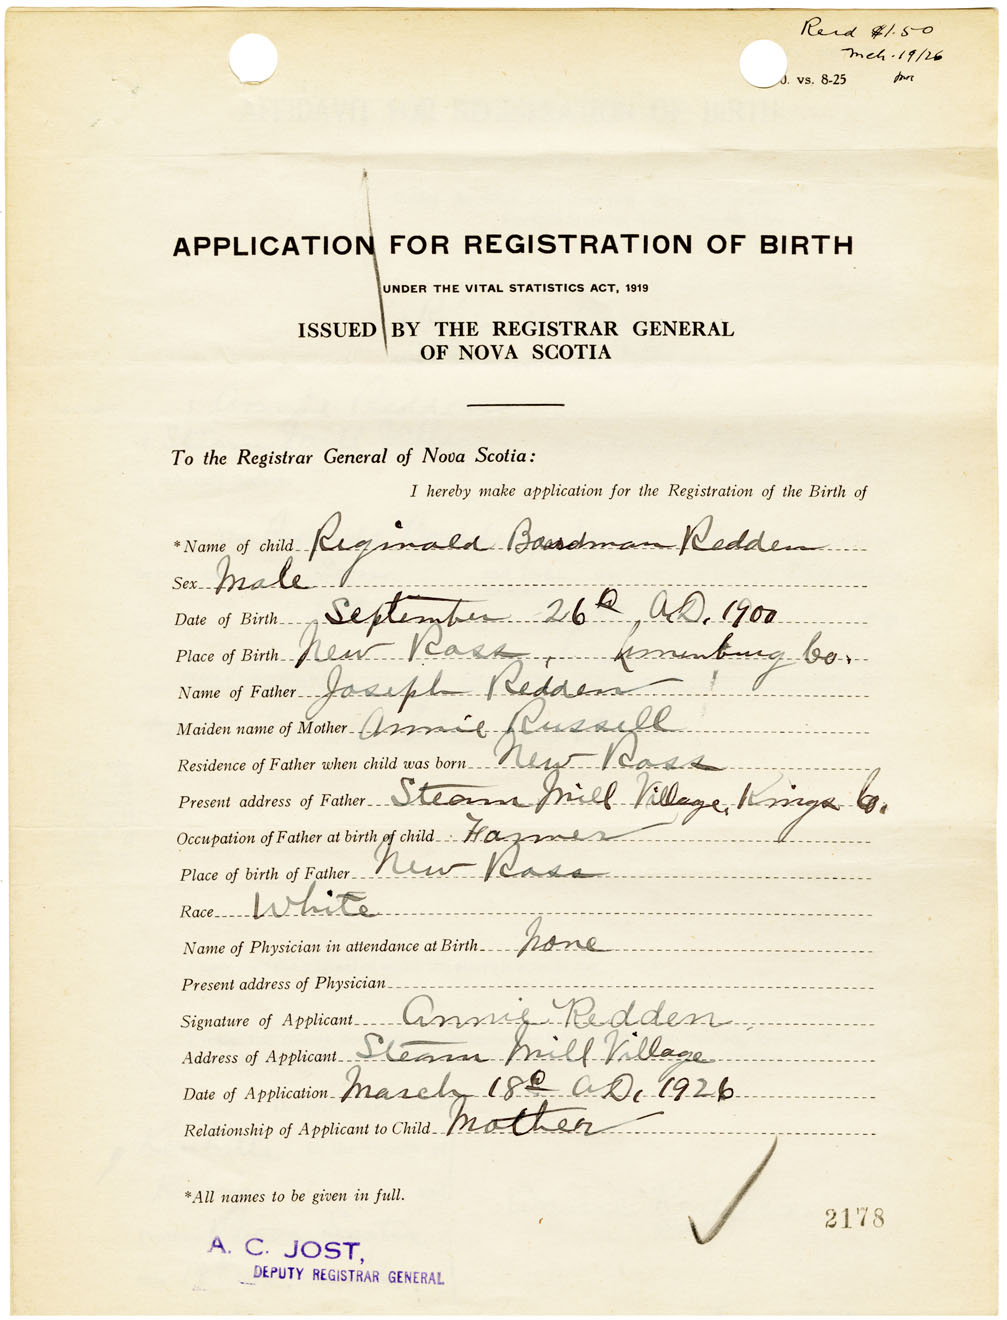 Recd $1.50
Mch. 19/26
. vs. 8-25
APPLICATION FOR REGISTRATION OF BIRTH
UNDER THE VITAL STATISTICS ACT, 1919
ISSUED BY THE REGISTRAR GENERAL
OF NOVA SCOTIA
To the Registrar General of Nova Scotia:
I hereby make application for the Registration of the Birth of
*Name of child Reginald Boardman Redden
Sex Male
Date of Birth September 26th A.D. 1900
Place of Birth New Ross, Lunenburg Co.
Name of Father Joseph Redden
Maiden name of Mother Annie Russell
Residence of Father when child was born New Ross
Present address of Father Steam Mill Village, Kings Co.
Occupation of Father at birth of child Farmer
Place of birth of Father New Ross
Race White
Name of Physician in attendance at Birth None
Present address of Physician
Signature of Applicant Annie Redden
Address of Applicant Steam Mill Village
Date of Application March 18th A.D. 1926
Relationship of Applicant to Child Mother
*All names to be given in full.
2178
A. C. JOST,
DEPUTY REGISTRAR GENERAL